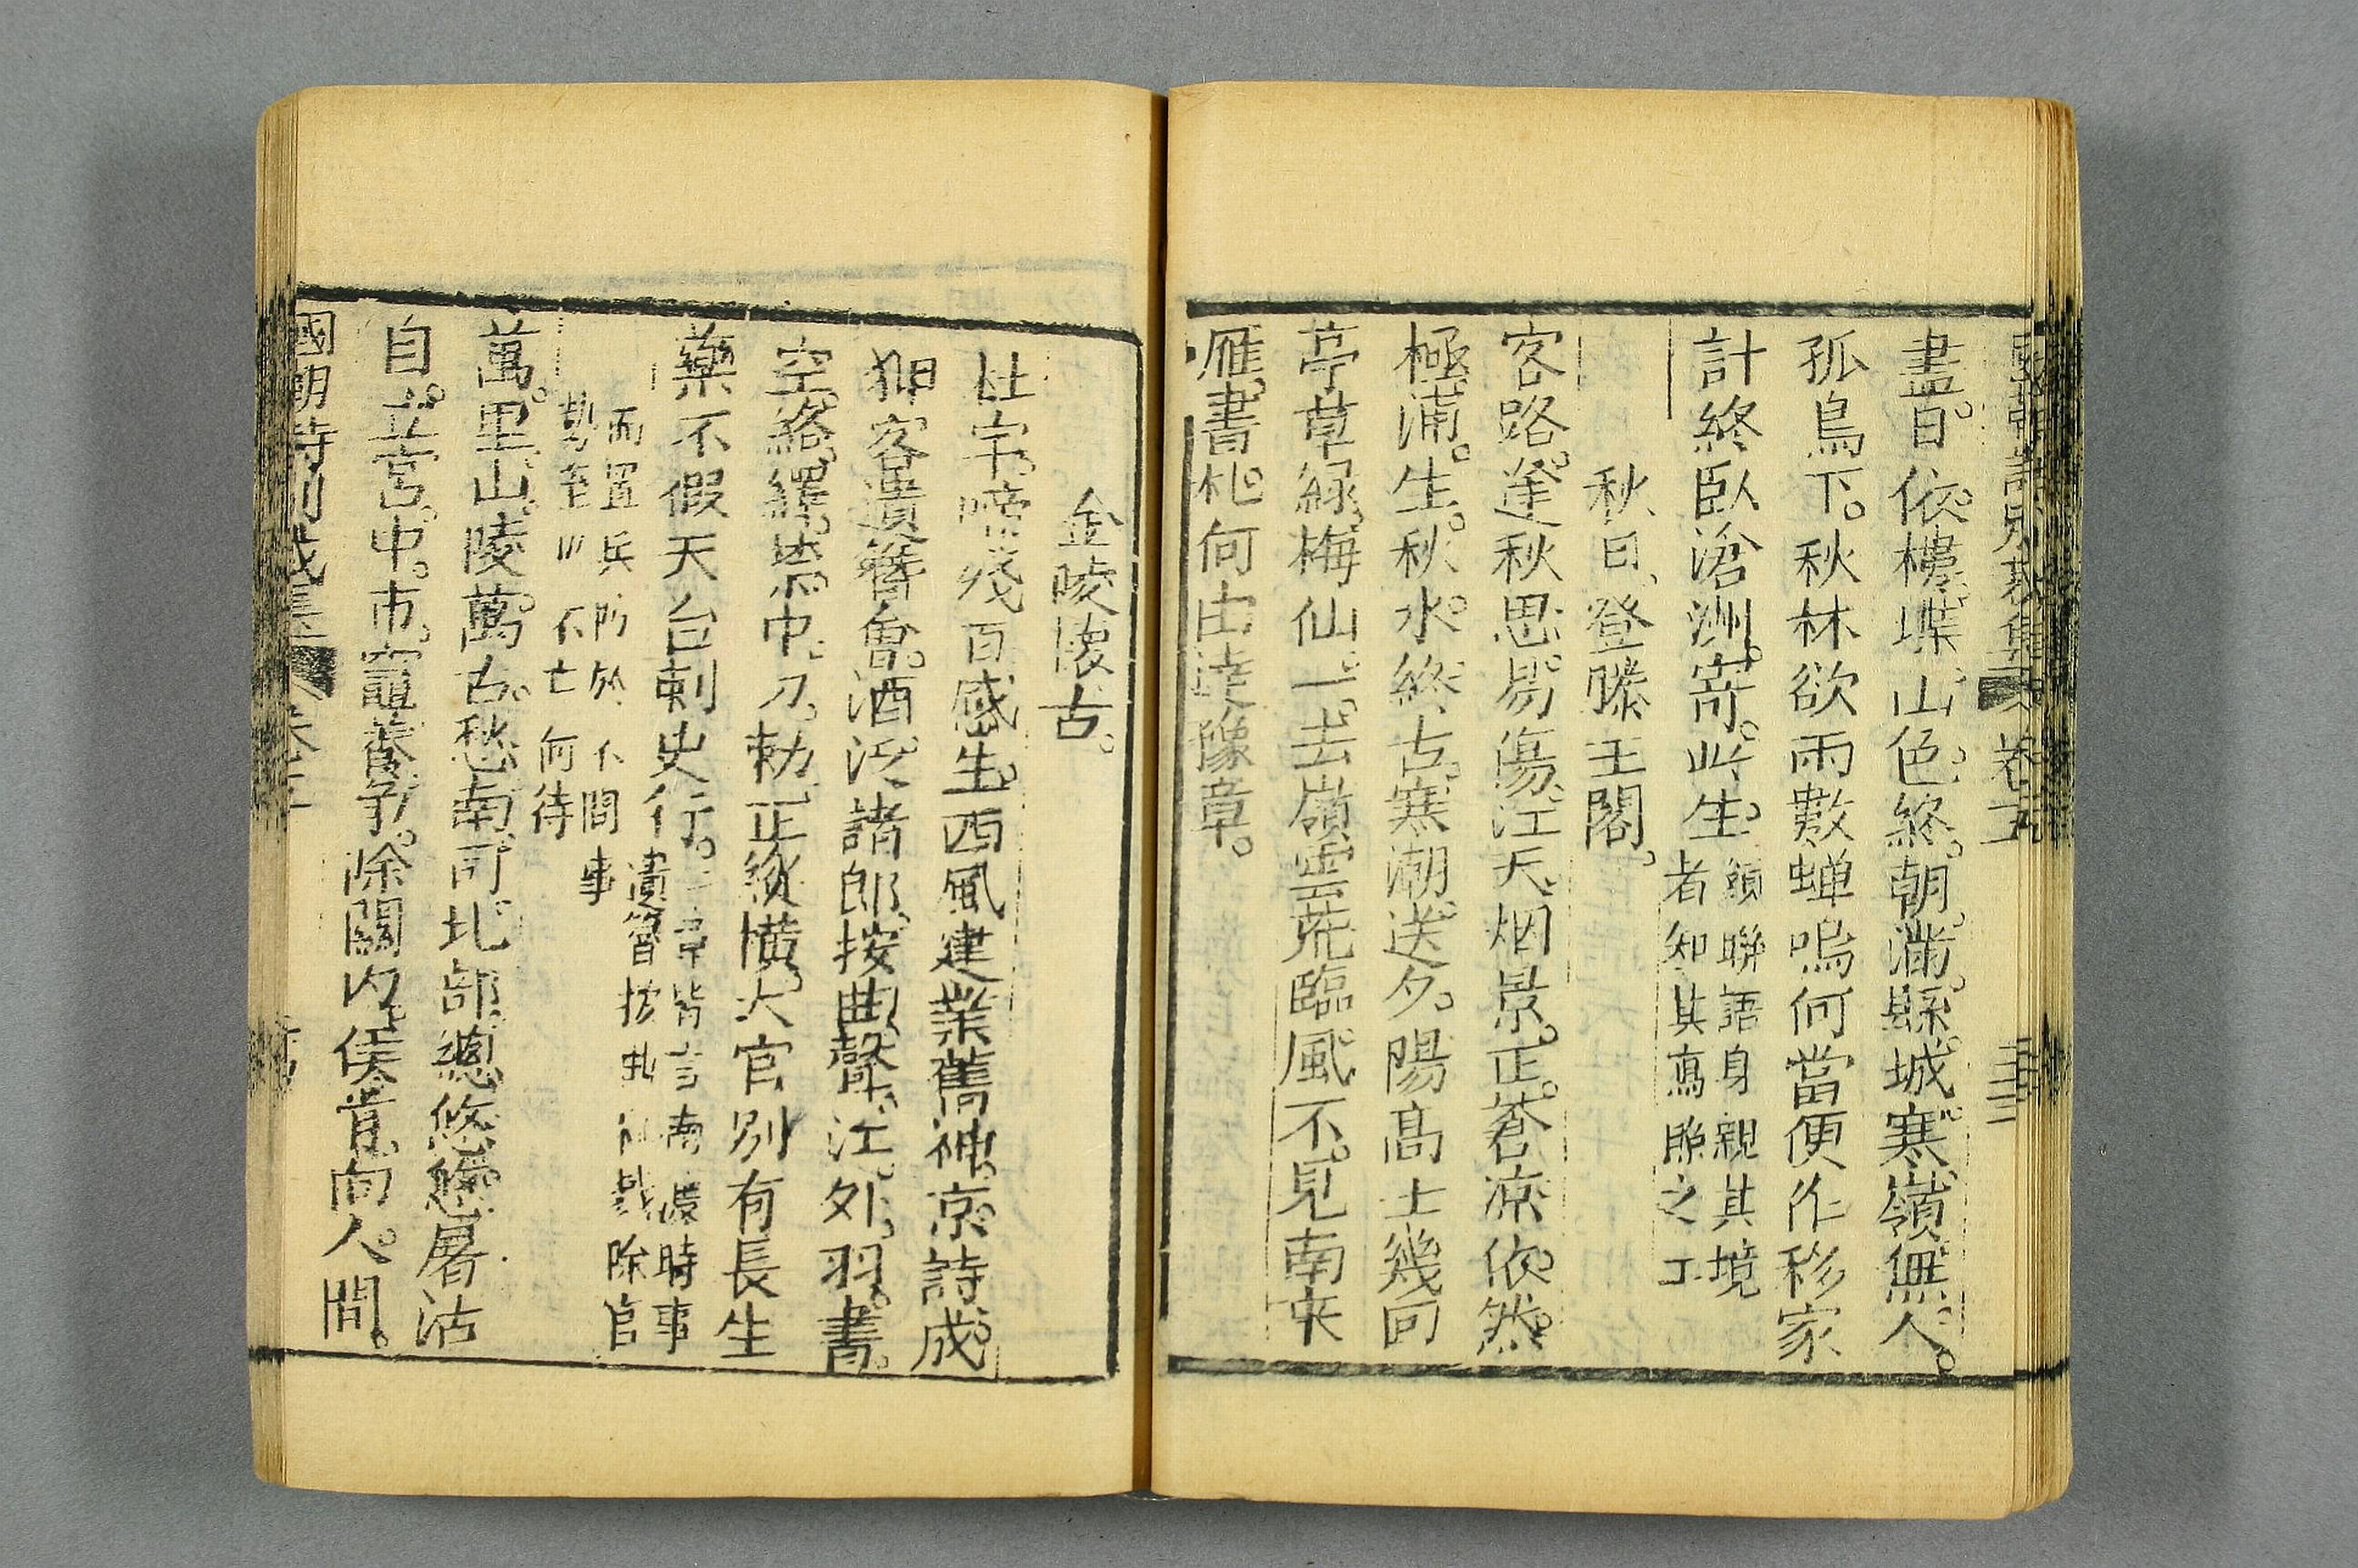 國朝詩別裁集 卷五
盡日依樓堞山色終朝滿縣城寒嶺無人
孤鳥下秋林欲雨數蟬鳴何當便作移家
計終臥滄洲寄此生頷聯語身親其境
者知其寫照之工
秋日登滕王閣
客路逢秋思易傷江天烟景正蒼凉依然
極浦生秋水終古寒潮送夕陽高士幾回
亭草緑梅仙一去嶺雲荒臨風不見南来
雁書札何由達豫章
金陵懐古
杜宇啼殘百感生西風建業舊神京詩成
狎客遺簪會酒泛諸郎按曲聲江外羽書
空絡繹禁中刀勅正縱横大官別有長生
藥不假天台刺史行二章皆言南渡時事
遺簪按曲 除官
而置兵防於不問事
勢至此不亡何待
萬里山陵萬古愁南司北部總悠悠屠沽
自立宮中市竈養爭除關内侯肯向人間
國朝詩別裁集 卷五